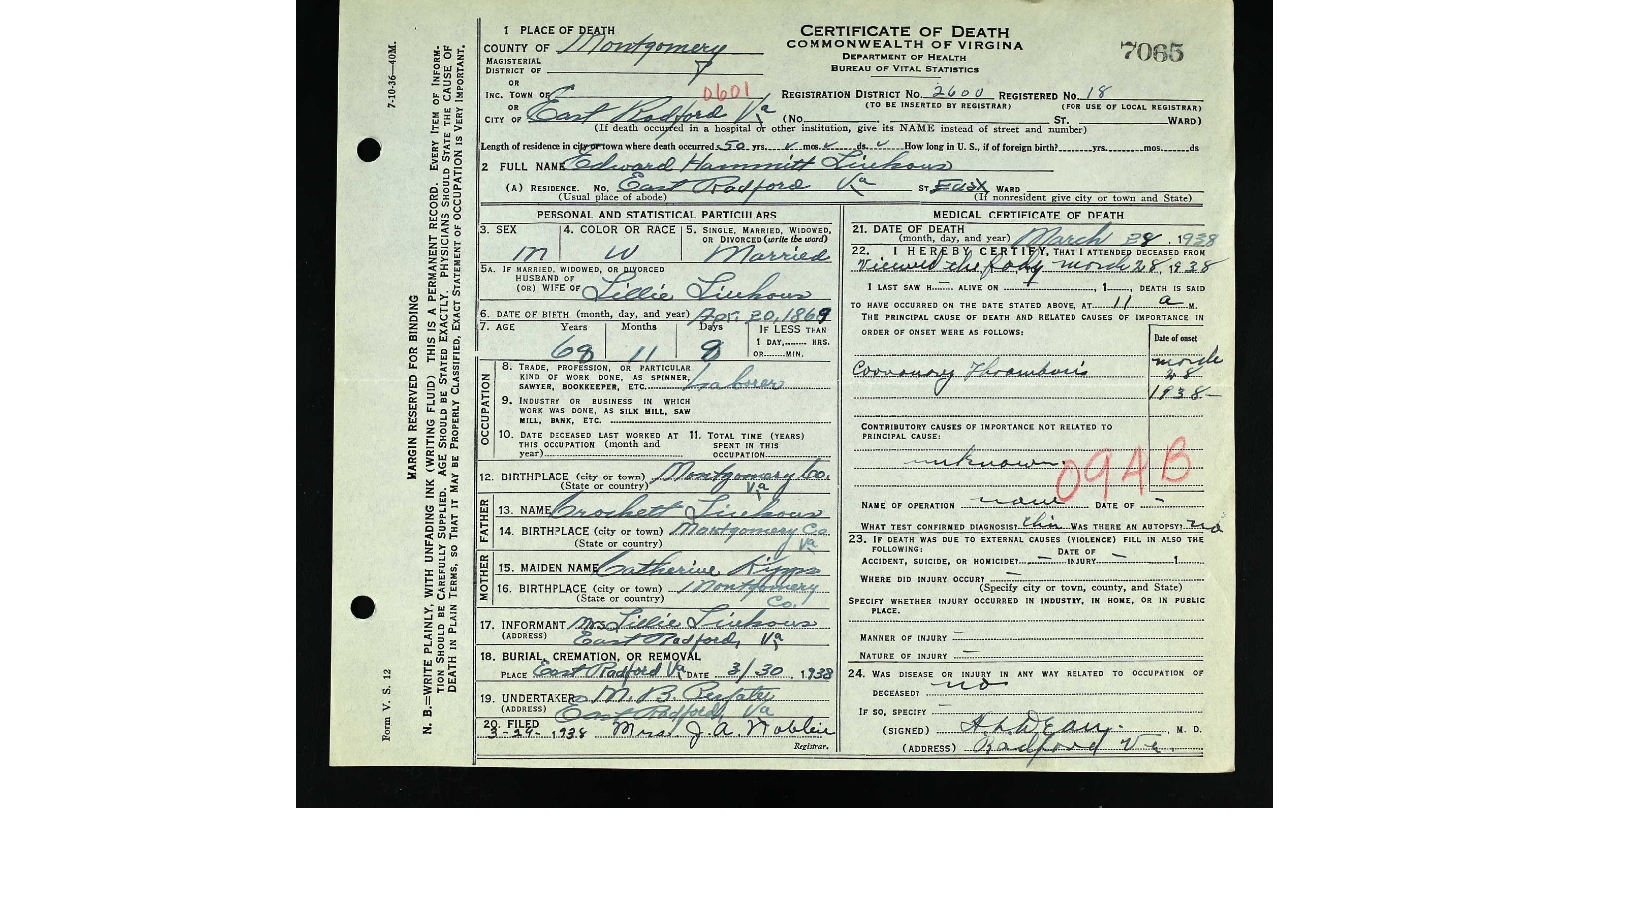 7-10-36—40M.
MARGIN RESERVED FOR BINDING
N. B.—WRITE PLAINLY, WITH UNFADING INK (WRITING FLUID) THIS IS A PERMANENT RECORD. EVERY ITEM OF INFORM-
TION SHOULD BE CAREFULLY SUPPLIED. AGE SHOULD BE STATED EXACTLY. PHYSICIANS SHOULD STATE THE CAUSE OF
DEATH IN PLAIN TERMS, SO THAT IT MAY BE PROPERLY CLASSIFIED, EXACT STATEMENT OF OCCUPATION IS VERY IMPORTANT.
Form V. S. 12
CERTIFICATE OF DEATH
COMMONWEALTH OF VIRGINIA
DEPARTMENT OF HEALTH
BUREAU OF VITAL STATISTICS
7065
1 PLACE OF DEATH
COUNTY OF Montgomery
MAGISTERIAL
DISTRICT OF
OR
INC. TOWN OF 0601
REGISTRATION DISTRICT NO. 2600 REGISTERED NO. 18
(TO BE INSERTED BY REGISTRAR) (FOR USE OF LOCAL REGISTRAR)
OR
CITY OF East Radford Va (No. ST. WARD)
(If death occurred in a hospital or other institution, give its NAME instead of street and number)
Length of residence in city or town where death occurred 50 yrs. mos. ds. How long in U. S., if of foreign birth? yrs. mos. ds
2 FULL NAME Edward Hammitt Linkous
(A) RESIDENCE. No. East Radford Va ST. WARD
(Usual place of abode) (If nonresident give city or town and State)
PERSONAL AND STATISTICAL PARTICULARS
3. SEX M
4. COLOR OR RACE W
5. SINGLE, MARRIED, WIDOWED,
OR DIVORCED (write the word)
Married
5A. IF MARRIED, WIDOWED, OR DIVORCED
HUSBAND OF
(OR) WIFE OF Lillie Linkous
6. DATE OF BIRTH (month, day, and year) Apr. 20, 1869
7. AGE Years Months Days IF LESS THAN
1 DAY, HRS.
OR MIN.
68 11 8
OCCUPATION
8. TRADE, PROFESSION, OR PARTICULAR
KIND OF WORK DONE, AS SPINNER,
SAWYER, BOOKKEEPER, ETC. Laborer
9. INDUSTRY OR BUSINESS IN WHICH
WORK WAS DONE, AS SILK MILL, SAW
MILL, BANK, ETC.
10. DATE DECEASED LAST WORKED AT
THIS OCCUPATION (month and
year)
11. TOTAL TIME (YEARS)
SPENT IN THIS
OCCUPATION
12. BIRTHPLACE (city or town) Montgomery Co.
(State or country) Va
FATHER
13. NAME Crockett Linkous
14. BIRTHPLACE (city or town) Montgomery Co
(State or country) Va
MOTHER
15. MAIDEN NAME Catherine Kipps
16. BIRTHPLACE (city or town) Montgomery
(State or country) Co.
17. INFORMANT Mrs Lillie Linkous
(ADDRESS) East Radford, Va
18. BURIAL, CREMATION, OR REMOVAL
PLACE East Radford Va DATE 3/30, 1938
19. UNDERTAKER M. B.
(ADDRESS) East Radford, Va
20. FILED
3-29- 1938 Mrs. J. A. Noblin
Registrar.
MEDICAL CERTIFICATE OF DEATH
21. DATE OF DEATH
(month, day, and year) March 28, 1938
22. I HEREBY CERTIFY, THAT I ATTENDED DECEASED FROM
Viewed the body March 28, 1938
I LAST SAW H ALIVE ON , 1 , DEATH IS SAID
TO HAVE OCCURRED ON THE DATE STATED ABOVE, AT 11 a M.
THE PRINCIPAL CAUSE OF DEATH AND RELATED CAUSES OF IMPORTANCE IN
ORDER OF ONSET WERE AS FOLLOWS:
Date of onset
Coronary Thrombosis March
28
1938
CONTRIBUTORY CAUSES OF IMPORTANCE NOT RELATED TO
PRINCIPAL CAUSE:
unknown.
094B
NAME OF OPERATION none DATE OF -
WHAT TEST CONFIRMED DIAGNOSIS? Clin WAS THERE AN AUTOPSY? no
23. IF DEATH WAS DUE TO EXTERNAL CAUSES (VIOLENCE) FILL IN ALSO THE
FOLLOWING:
ACCIDENT, SUICIDE, OR HOMICIDE? — DATE OF INJURY — 1
WHERE DID INJURY OCCUR? —
(Specify city or town, county, and State)
SPECIFY WHETHER INJURY OCCURRED IN INDUSTRY, IN HOME, OR IN PUBLIC
PLACE.
MANNER OF INJURY —
NATURE OF INJURY —
24. WAS DISEASE OR INJURY IN ANY WAY RELATED TO OCCUPATION OF
DECEASED? no
IF SO, SPECIFY —
(SIGNED) , M. D.
(ADDRESS) Radford Va.